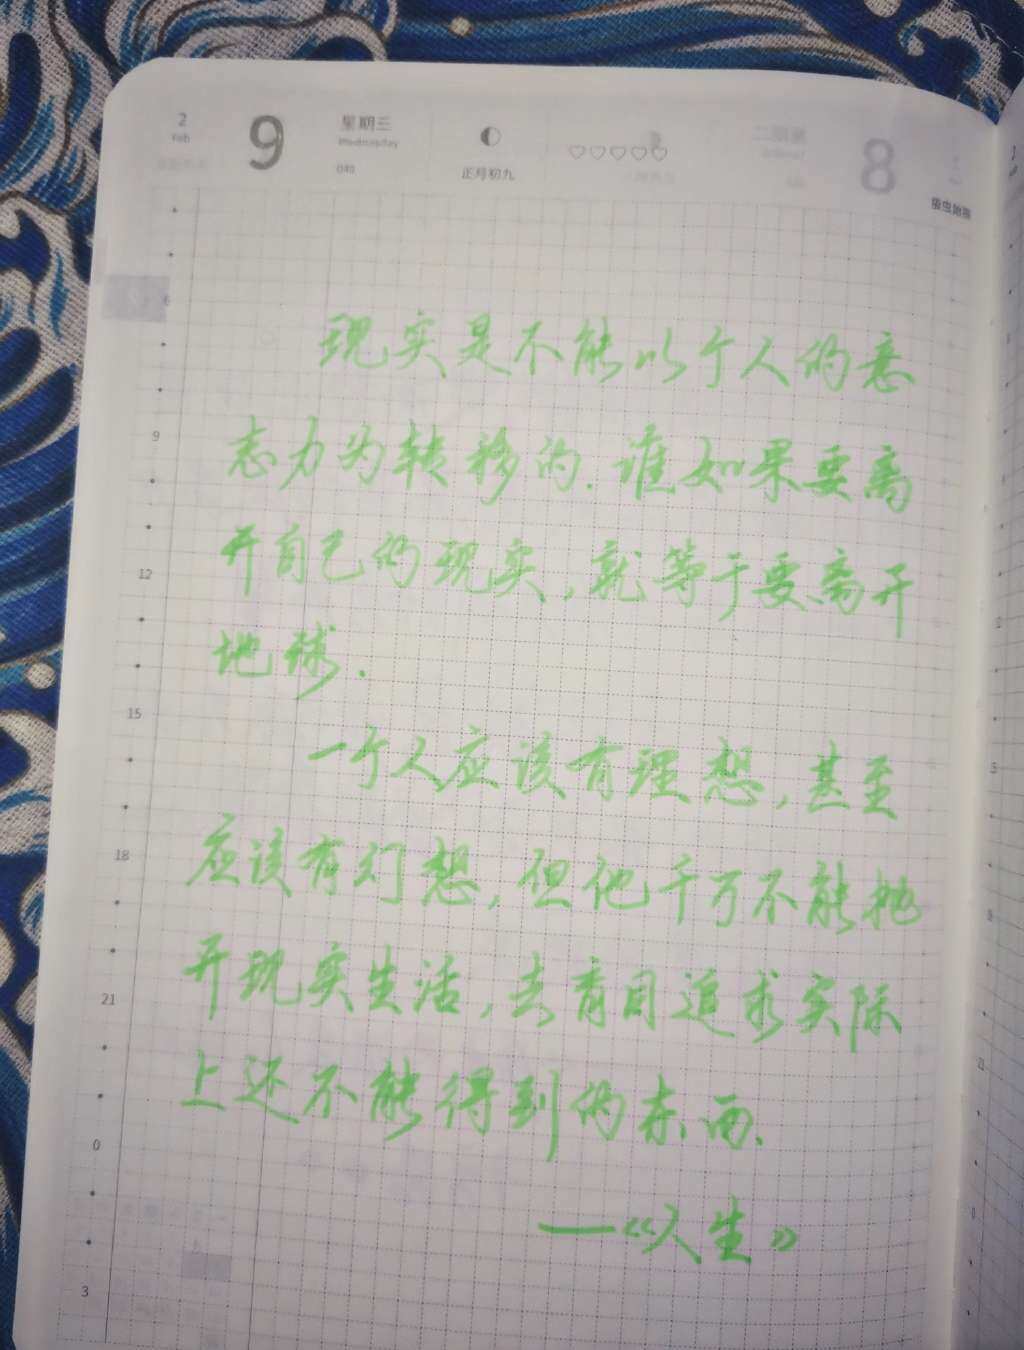 2
Feb
9
星期三
Wednesday
040
正月初九
现实是不能以个人的意
志力为转移的.谁如果要离
9
开自己的现实,就等于要离开
12
地球.
15
一个人应该有理想,甚至
应该有幻想,但他千万不能抛
18
开现实生活,去盲目追求实际
21
上还不能得到的东西.
0
——《人生》
3